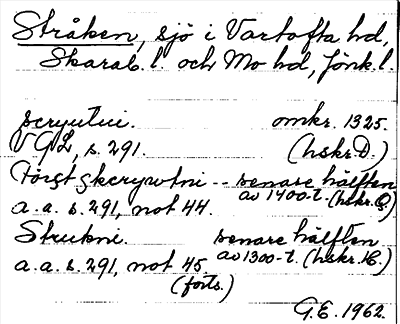 Stråken, sjö i Vartofta hd,
Skarab. l. och Mo hd, Jönk. l.
scryutui. omkr. 1325.
VGL, s. 291. (hskr. D.)
Törstskcrywtni -- senare hälften
a.a. s. 291, not 44. av 1400-t. (hskr. C.)
Strukni. senare hälften
a.a. s. 291, not 45. av 1300-t. (hskr. K.)
(forts.)
G.E. 1962.